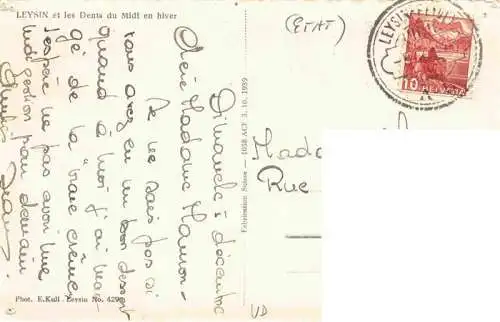 LEYSIN et les Dents du Midi en hiver
(ETAT)
LEYSIN
10 HELVETIA
Dimanche 3 décembre
Chère Madame Hamon -
Je ne sais pas si
vous avez eu un bon dessert
quant à moi j'ai man
gé de la vraie crème
J'espère ne pas avoir une
indigestion pour demain
Fabrication Suisse — 1058 ACF 3. 10. 1939
Rue
Phot. E. Kull Leysin No. 429
VD